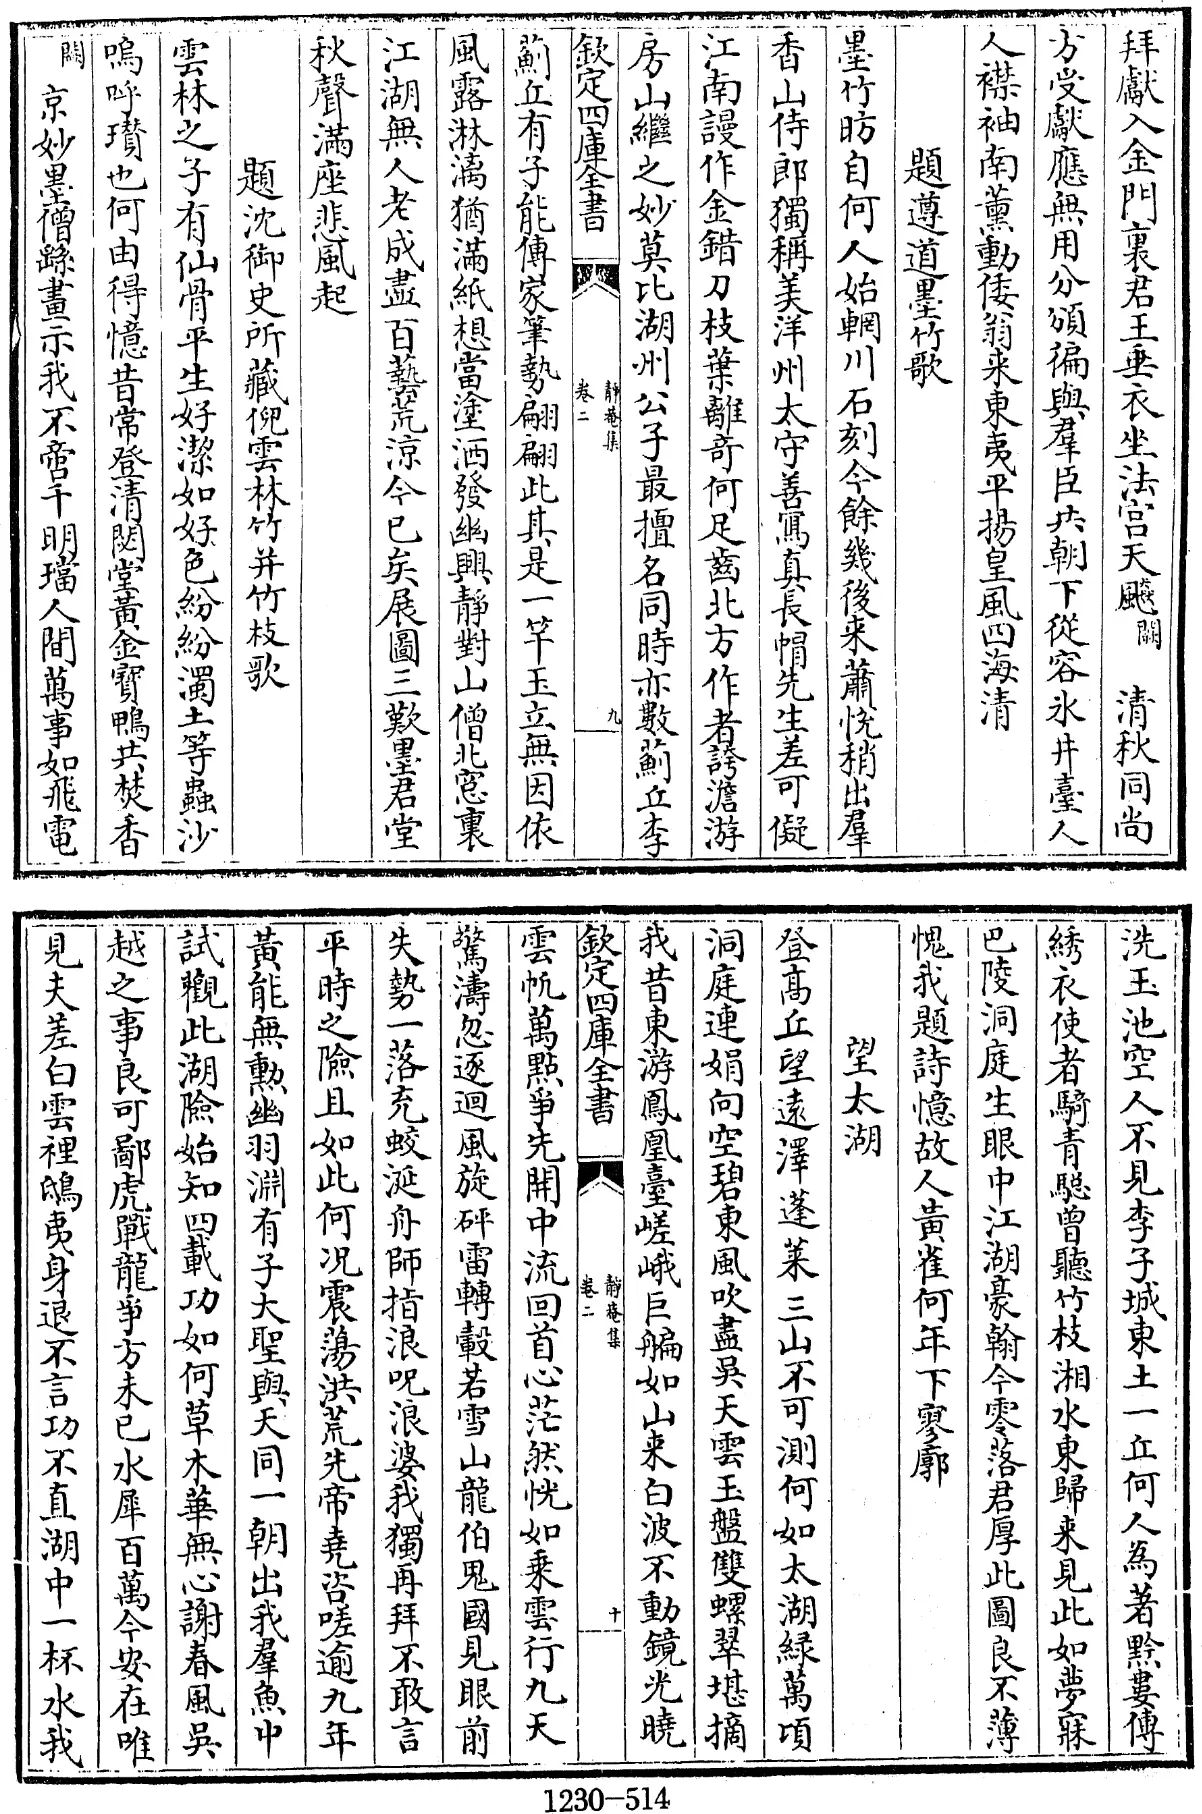 拜獻入金門裏君王垂衣坐法宫天颷闕清秋同尚
方受獻應無用分頒徧與羣臣共朝下從容氷井臺人
人襟袖南薰動倭翁来東夷平揚皇風四海清
題遵道墨竹歌
墨竹昉自何人始輞川石刻今餘幾後来蕭悦稍出羣
香山侍郎獨稱美洋州太守善寫真長帽先生差可儗
江南謾作金錯刀枝葉離竒何足齒北方作者誇澹游
房山繼之妙莫比湖州公子最擅名同時亦數薊丘李
欽定四庫全書
靜菴集
卷二
九
薊丘有子能傳家筆勢翩翩此其是一竿玉立無因依
風露淋漓猶滿紙想當塗洒發幽興靜對山僧北窓裏
江湖無人老成盡百藝荒涼今已矣展圖三歎墨君堂
秋聲滿座悲風起
題沈御史所藏倪雲林竹并竹枝歌
雲林之子有仙骨平生好潔如好色紛紛濁土等蟲沙
嗚呼瓚也何由得憶昔常登清閟堂黃金寶鴨共焚香
闕京妙墨僧繇畫示我不啻千明璫人間萬事如飛電
洗玉池空人不見李子城東土一丘何人為著黔婁傳
綉衣使者騎青驄曾聽竹枝湘水東歸来見此如夢寐
巴陵洞庭生眼中江湖豪翰今零落君厚此圖良不薄
愧我題詩憶故人黄雀何年下寥廓
望太湖
登髙丘望遠澤蓬莱三山不可測何如太湖緑萬頃
洞庭連娟向空碧東風吹盡吳天雲玉盤雙螺翠堪摘
我昔東游鳳凰臺嵯峨巨艑如山来白波不動鏡光曉
欽定四庫全書
靜菴集
卷二
十
雲帆萬點爭先開中流回首心茫然恍如乗雲行九天
驚濤忽逐迴風旋砰雷轉轂若雪山龍伯鬼國見眼前
失勢一落充蛟涎舟師指浪呪浪婆我獨再拜不敢言
平時之險且如此何况震蕩洪荒先帝堯咨嗟逾九年
黃能無勲幽羽淵有子大聖與天同一朝出我羣魚中
試觀此湖險始知四載功如何草木華無心謝春風吳
越之事良可鄙虎戰龍爭方未已水犀百萬今安在唯
見夫差白雲裡鴟夷身退不言功不直湖中一杯水我
1230-514